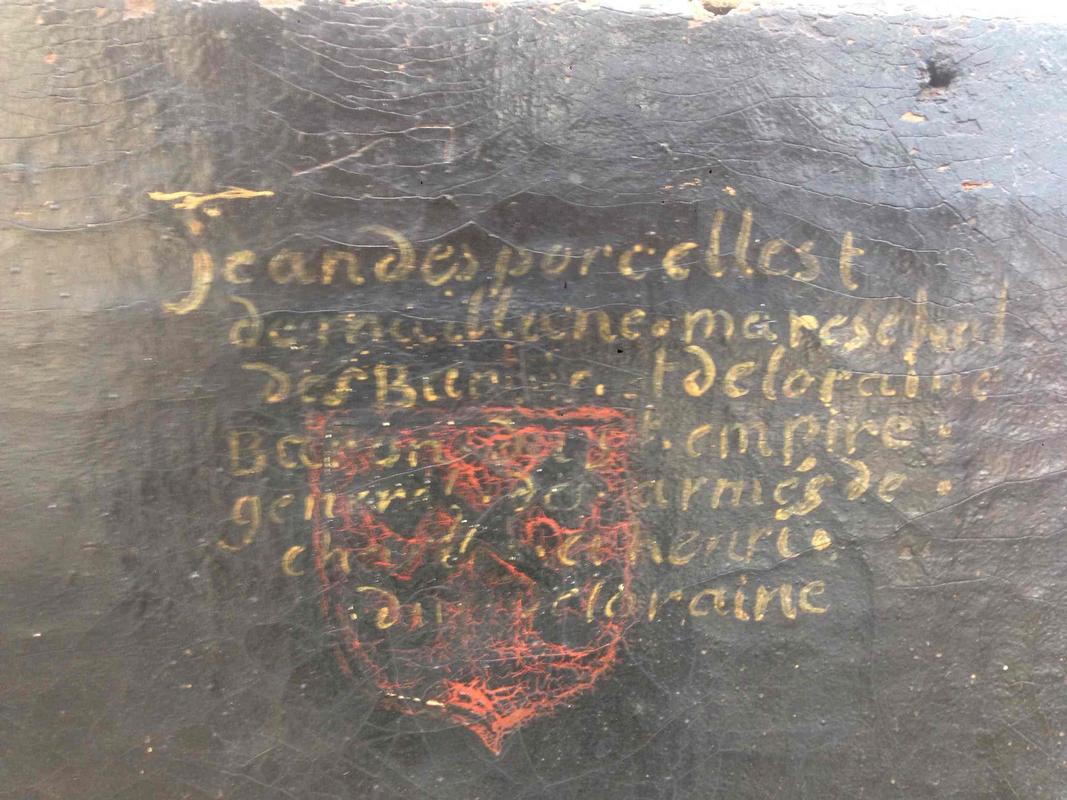 jean des porcellest
demaillane. mareschal
des Bar . et deloraine
Baron du st. empire.
general. des. armés de.
charl et henri.
du deloraine